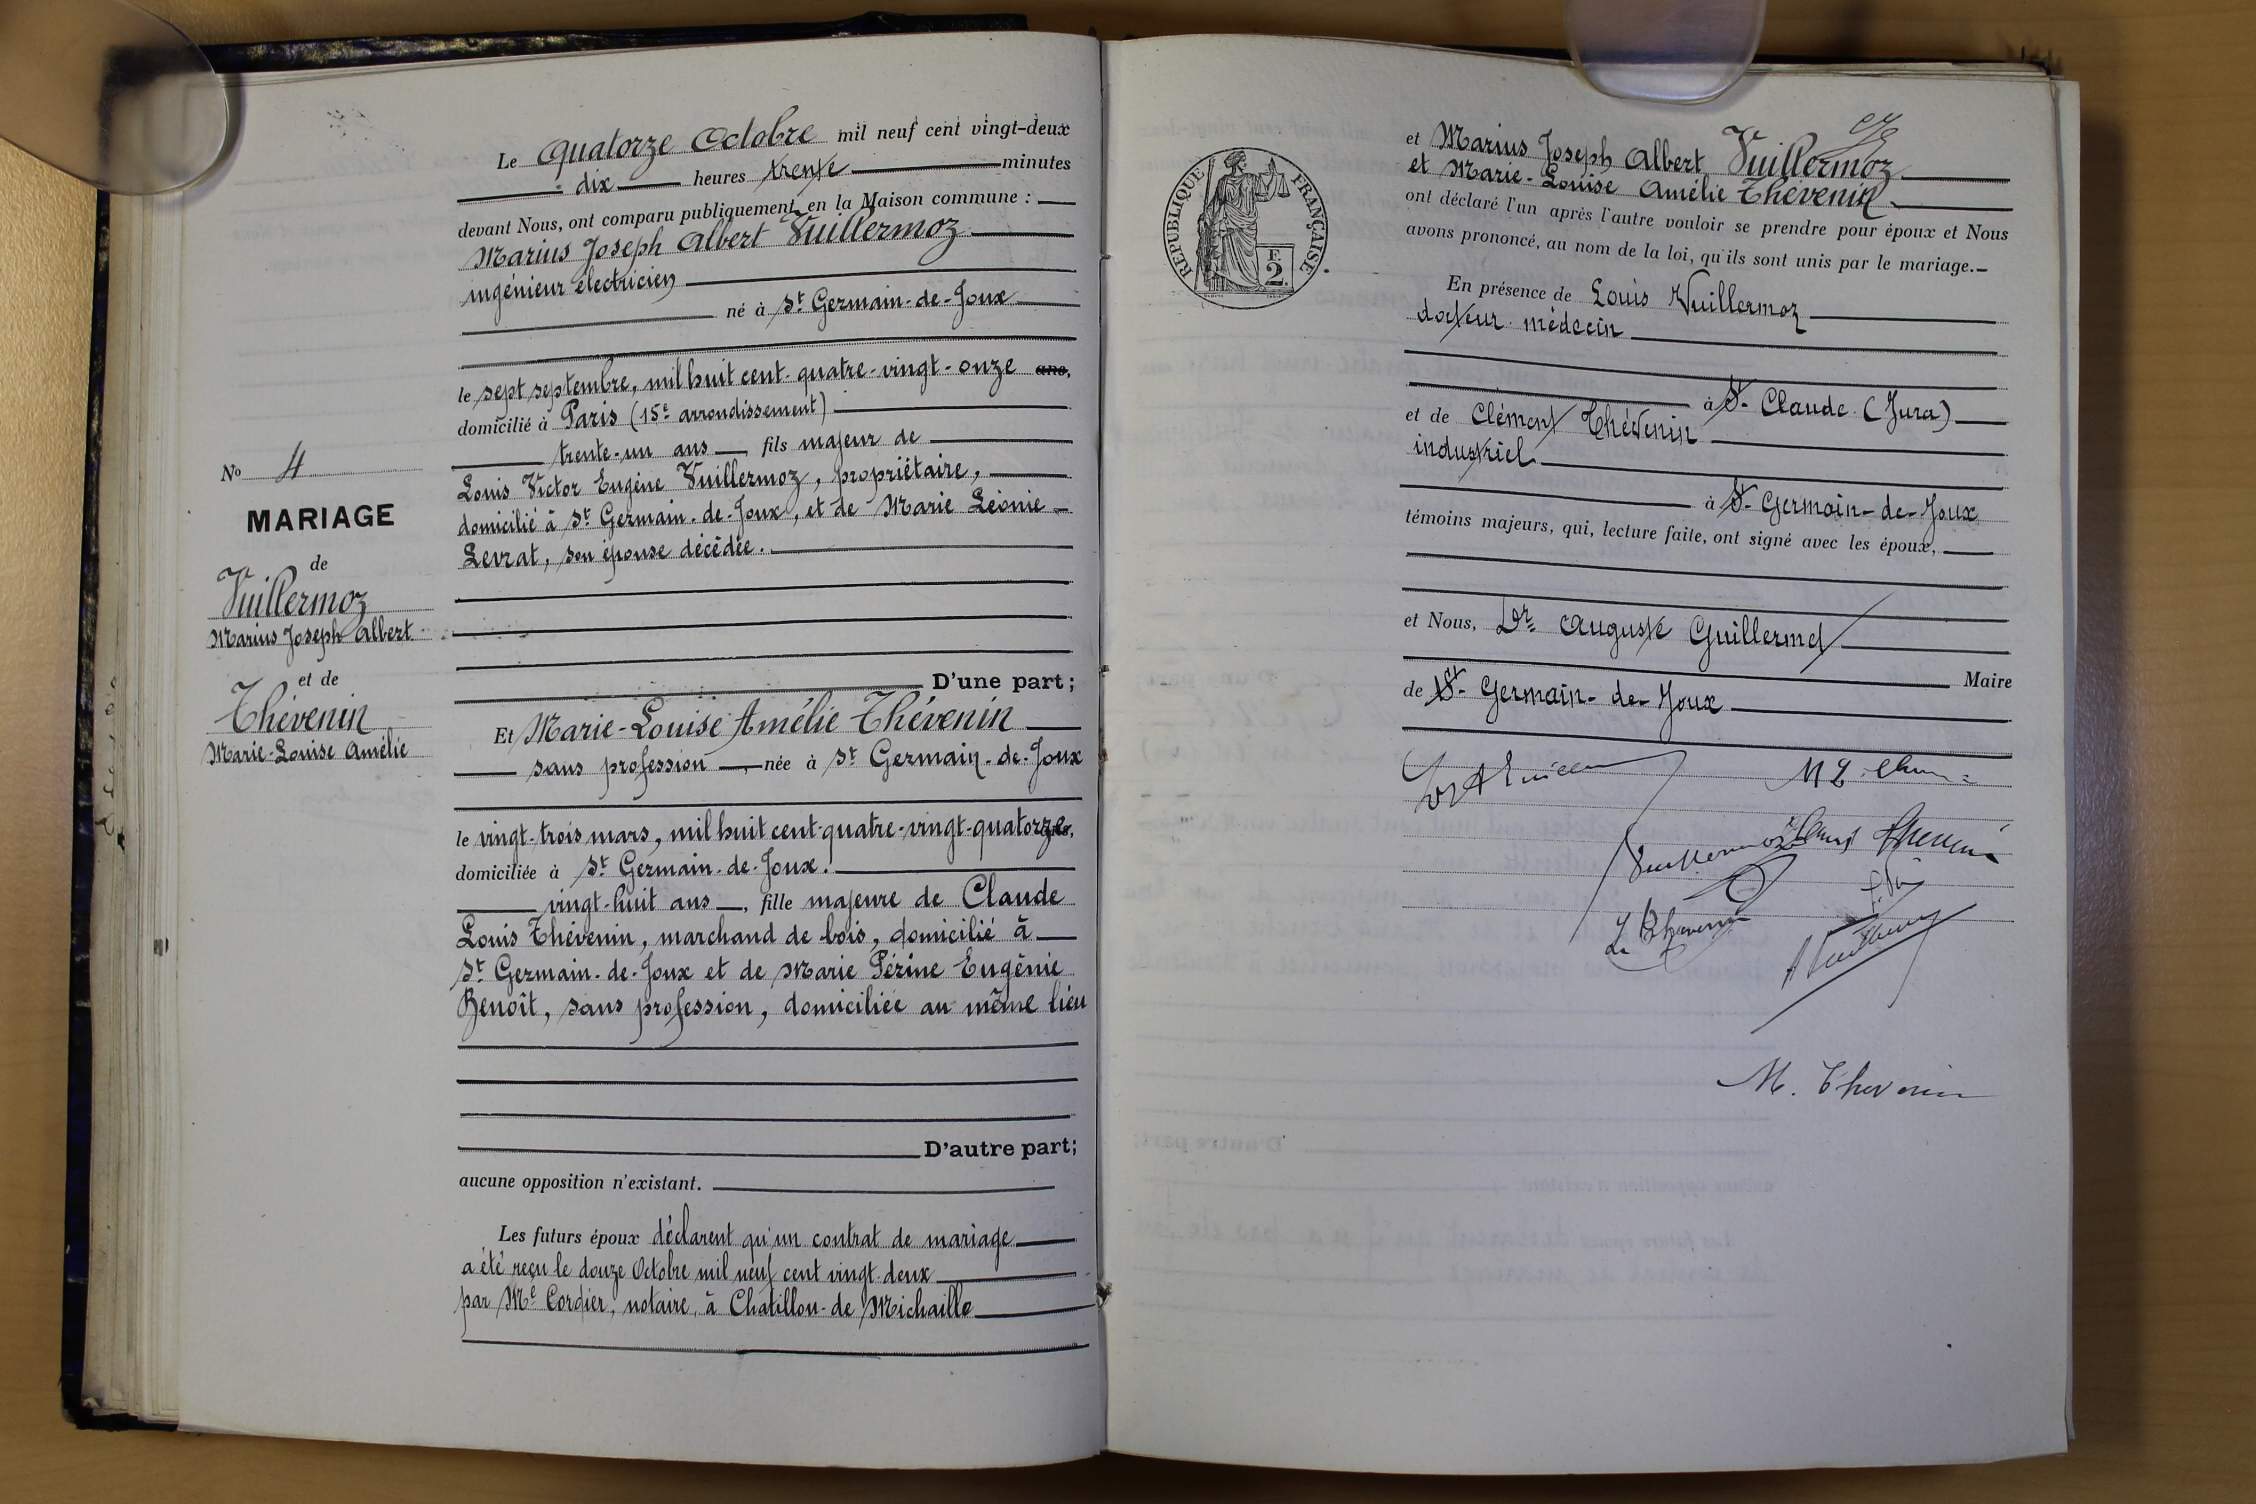 Le quatorze Octobre mil neuf cent vingt-deux
dix heures trente minutes
devant Nous, ont comparu publiquement en la Maison commune :
Marius Joseph Albert Vuillermoz
ingénieur électricien
né à St Germain-de-Joux
le sept septembre, mil huit cent-quatre-vingt-onze ans,
domicilié à Paris (15e arrondissement)
trente-un ans, fils majeur de
Louis Victor Eugène Vuillermoz, propriétaire,
domicilié à St Germain-de-Joux, et de Marie Léonie
Levrat, son épouse décédée.
D'une part;
No 4
MARIAGE
de
Vuillermoz
Marius Joseph Albert
et de
Thévenin
Marie-Louise Amélie
Et Marie-Louise Amélie Thévenin
sans profession, née à St Germain-de-Joux
le vingt-trois mars, mil huit cent-quatre-vingt-quatorze,
domiciliée à St Germain-de-Joux.
vingt-huit ans, fille majeure de Claude
Louis Thévenin, marchand de bois, domicilié à
St Germain-de-Joux et de Marie Périne Eugénie
Benoît, sans profession, domiciliée au même lieu
D'autre part;
aucune opposition n'existant.
Les futurs époux déclarent qu'un contrat de mariage
a été reçu le douze Octobre mil neuf cent vingt-deux
par Me Cordier, notaire, à Chatillon-de-Michaille
RÉPUBLIQUE FRANÇAISE
F.
2.
et Marius Joseph Albert Vuillermoz
et Marie-Louise Amélie Thévenin
ont déclaré l'un après l'autre vouloir se prendre pour époux et Nous
avons prononcé, au nom de la loi, qu'ils sont unis par le mariage.
En présence de Louis Vuillermoz
docteur médecin
à St-Claude (Jura)
et de Clément Thévenin
industriel
à St-Germain-de-Joux
témoins majeurs, qui, lecture faite, ont signé avec les époux,
et Nous, Dr Auguste Guillermet
Maire
de St-Germain-de-Joux
Vuillermoz
Thévenin
M. Thevenin